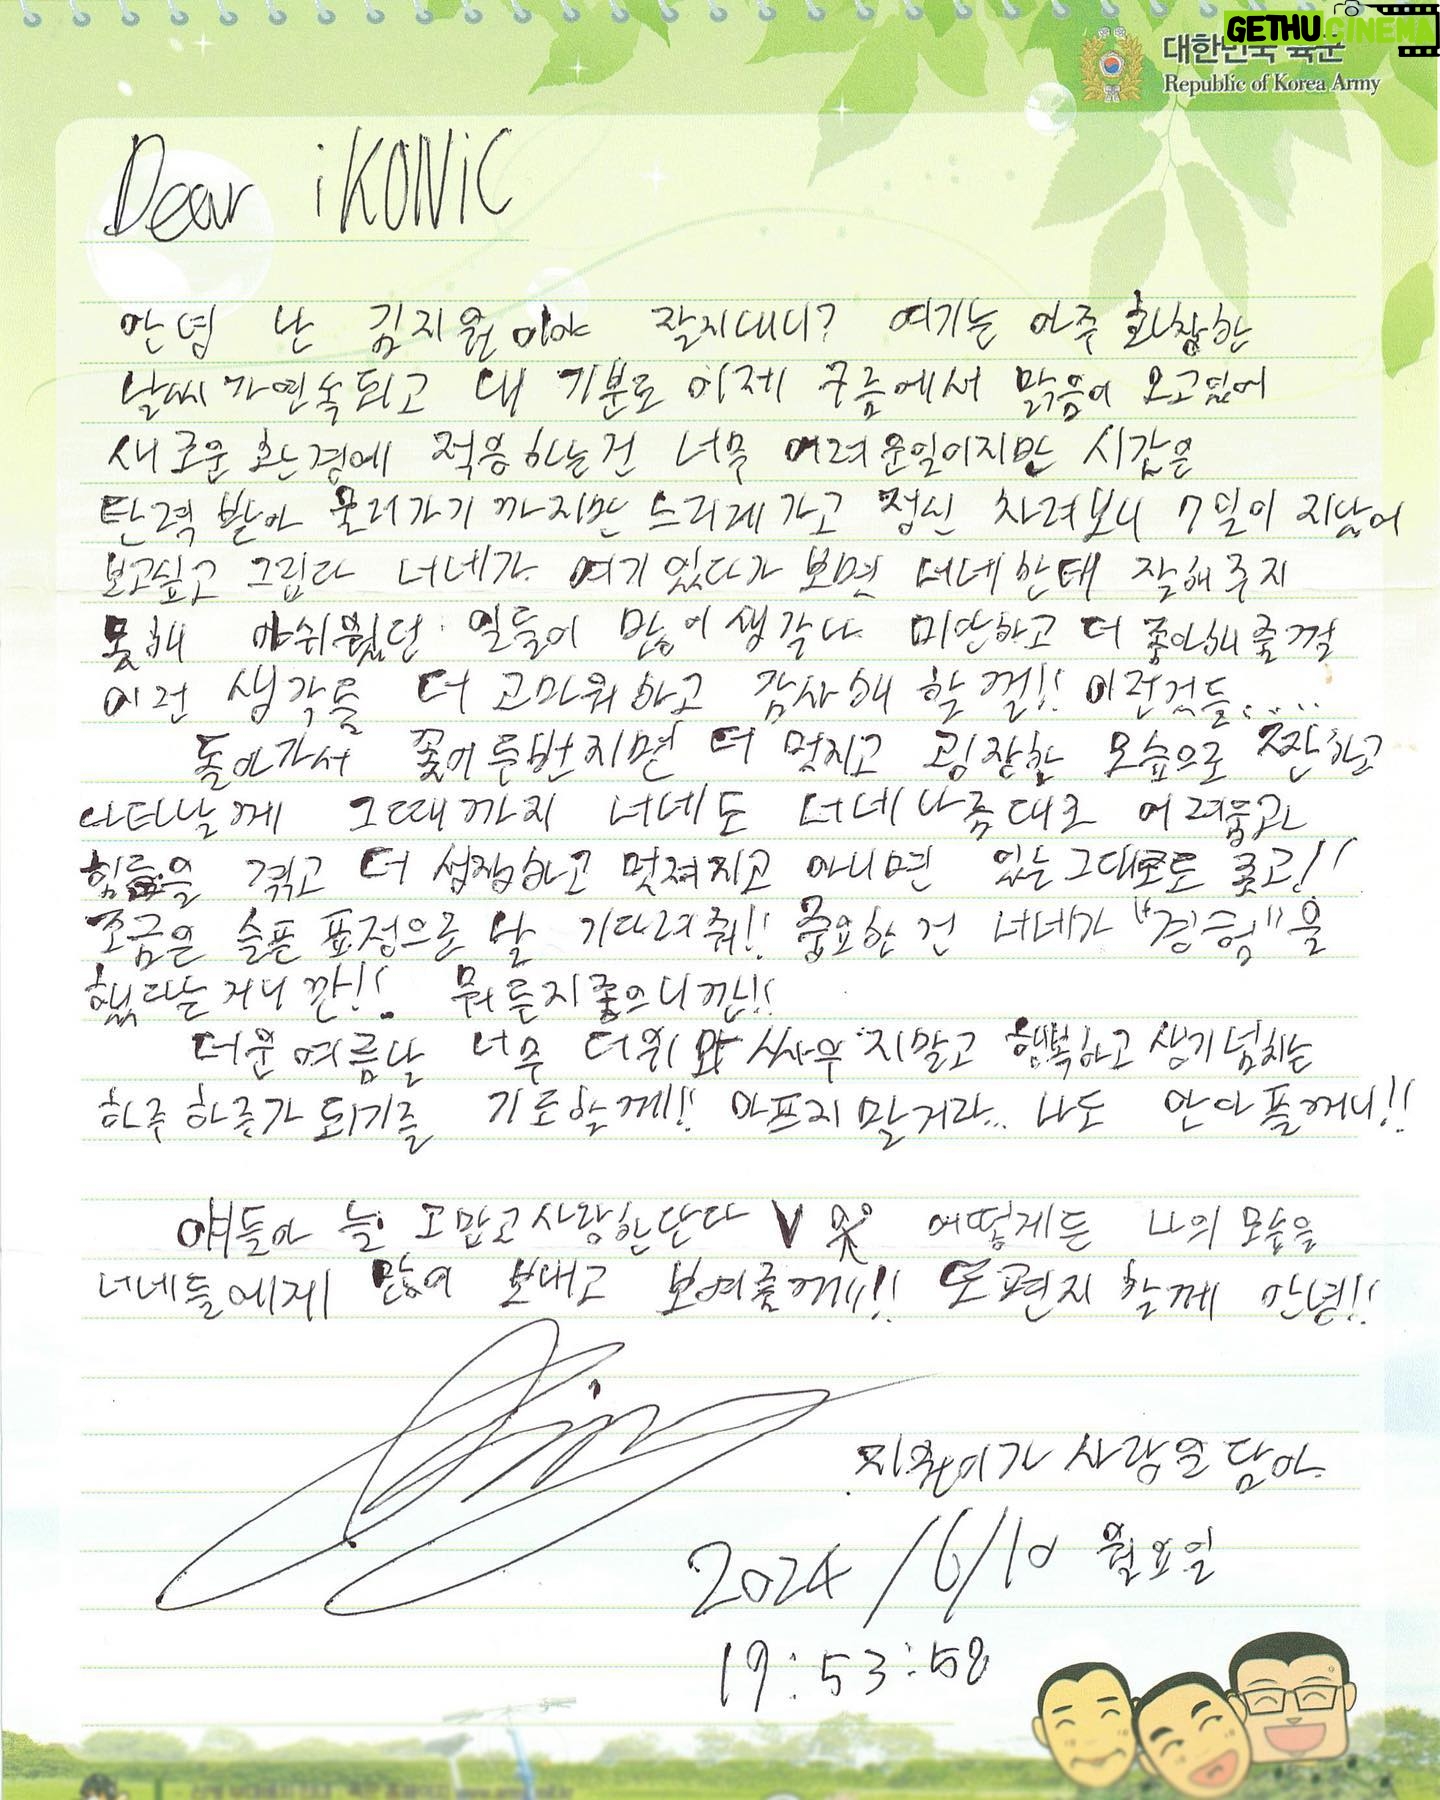 GETHU CINEMA
대한민국 육군
Republic of Korea Army
Dear iKONiC
안녕 난 김지원이야 잘지내니? 여기는 아주 화창한
날씨가연속되고 내 기분도 이제 구름에서 맑음이 오고있어
새로운 환경에 적응하는건 너무 어려운일이지만 시간은
탄력 받아 굴러가기 까지만 드리게 가고 정신 차려보니 7일이 지났어
보고싶고 그립다 너네가 여기 있다가 보면 너네한태 잘해주지
못해 아쉬웠던 일들이 많이 생각나 미안하고 더 좋아해줄껄
이런 생각들 더 고마워하고 감사해 할껄!! 이런것들.....
돌아가서 꽃이 른번지면 더 멋지고 굉장한 모습으로 짠하고
나타날께 그때까지 너네도 너네나름대로 어려움과
힘듦을 겪고 더 성장하고 멋져지고 아니면 있는그대로도 좋고!!
조금은 슬픈 표정으로 날 기다려줘!! 중요한 건 너네가 "경험"을
했다는거니깐!! 뭐든지좋으니깐!!
더운여름날 너무 더위와 싸우지말고 행복하고 생기넘치는
하루하루가 되기를 기도할께!! 아프지말거라... 나도 안아플꺼니!!
얘들아 늘 고맙고사랑한단다 V 어떻게든 나의 모습을
너네들에게 많이 보내고 보여줄께!!! 또편지할께 안녕!!
지원이가 사랑을담아
2024/6/10 월요일
19:53:58